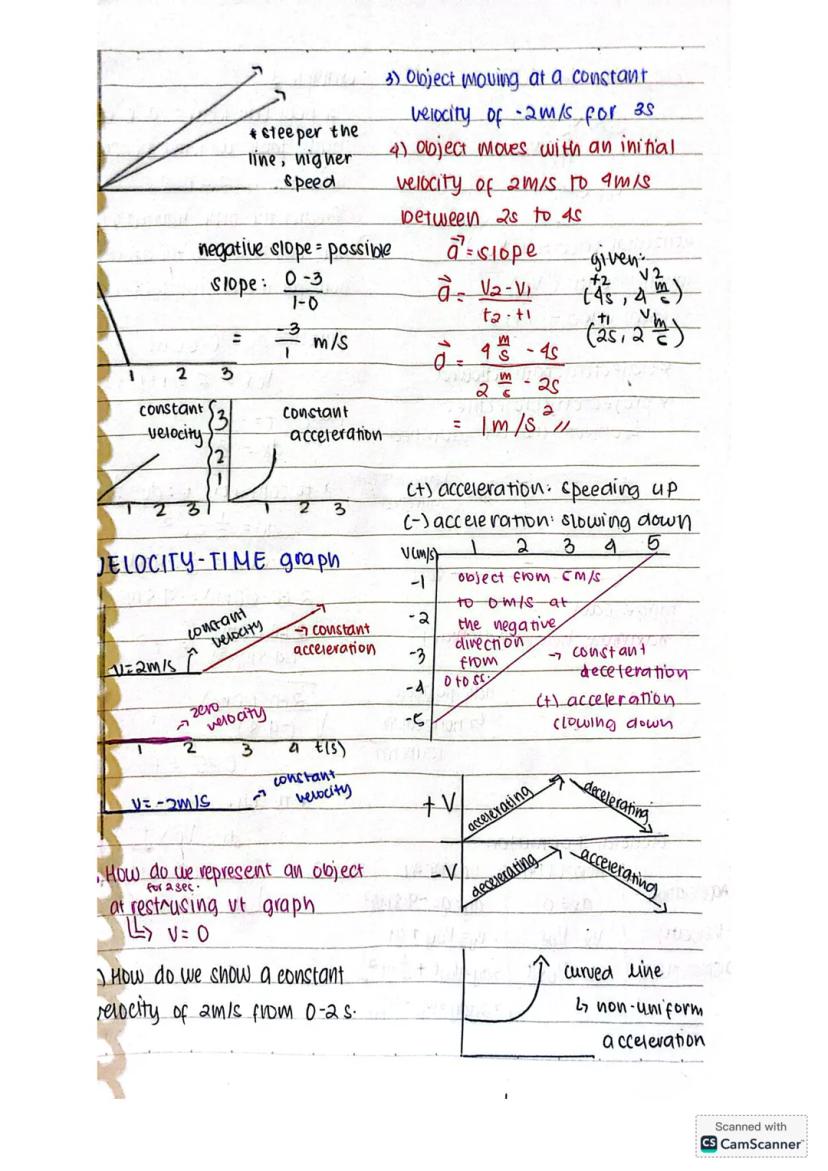 * steeper the
line, higher
speed
negative slope = possible
slope: 0 - 3
1 - 0
= -3/1 m/s
1 2 3
constant
velocity
1 2 3
3
2
1
constant
acceleration
1 2 3
VELOCITY-TIME graph
constant
velocity
→ constant
acceleration
V=2m/s
→ zero
velocity
1 2 3 4 t(s)
V= -2m/s
→ constant
velocity
. How do we represent an object
for 2 sec.
at rest using vt graph
↳ V= 0
) How do we show a constant
velocity of 2m/s from 0-2 s.
3) Object moving at a constant
velocity of -2m/s for 3s
4) Object moves with an initial
velocity of 2m/s to 4m/s
between 2s to 4s
a = slope
a = V2 - V1
t2 - t1
a = 4 m/s - 4s
2 m/s - 2s
= 1m/s² //
given:
t2 V2
(4s, 4 m/s)
t1 V
(2s, 2 m/s)
(+) acceleration: speeding up
(-) acceleration: slowing down
V(m/s) 1 2 3 4 5
-1
-2
-3
-4
-5
object from 5m/s
to 0m/s at
the negative
direction
from
0 to 5s.
→ constant
deceleration
(+) acceleration
slowing down
+ V
accelerating
decelerating
- V
decelerating
accelerating
curved line
↳ non-uniform
acceleration
Scanned with
CS CamScanner